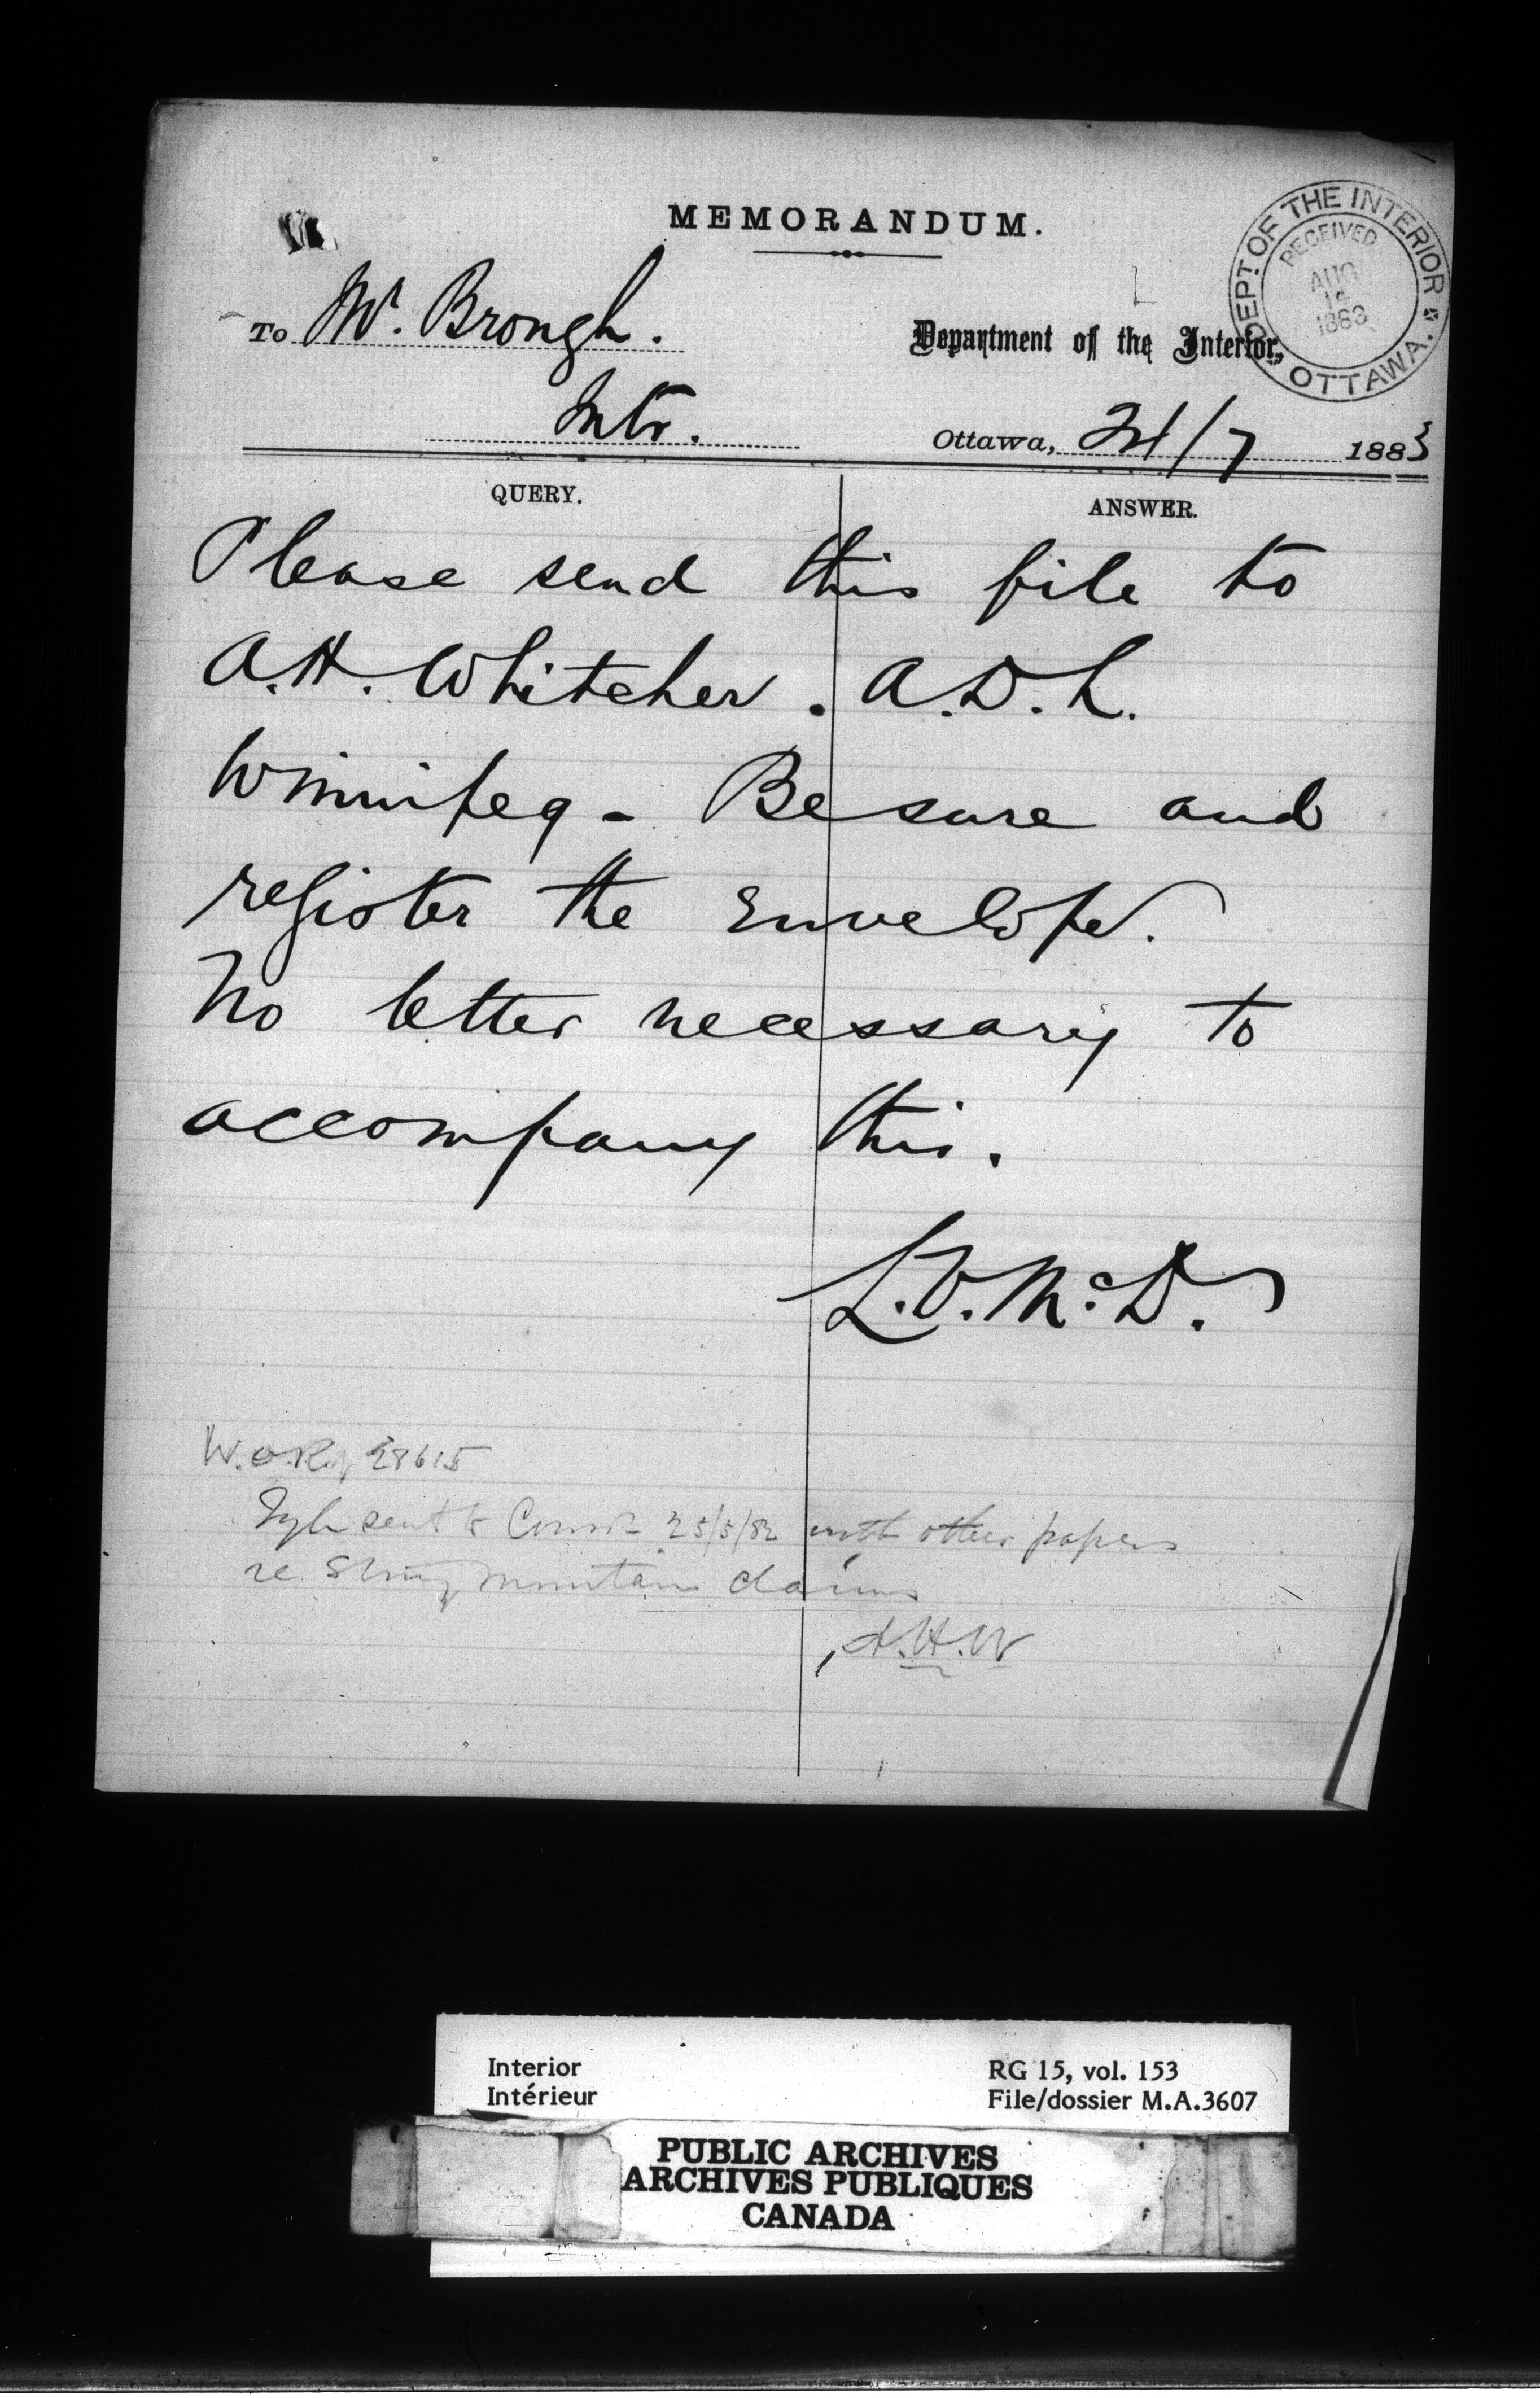 MEMORANDUM.
DEPT. OF THE INTERIOR
RECEIVED
AUG
14
1883
OTTAWA.
To Mr. Brough.
Department of the Interior,
Intr.
Ottawa, 24/7 1883
QUERY.
ANSWER.
Please send this file to
A.H. Whitcher. A.D.L.
Winnipeg - Be sure and
register the Envelope.
No letter necessary to
accompany this.
L.V.McD.
W.O. 28615
sent to 25/5/82 with other papers
re Stony Mountain claims
A.H.W
Interior
Intérieur
RG 15, vol. 153
File/dossier M.A.3607
PUBLIC ARCHIVES
ARCHIVES PUBLIQUES
CANADA